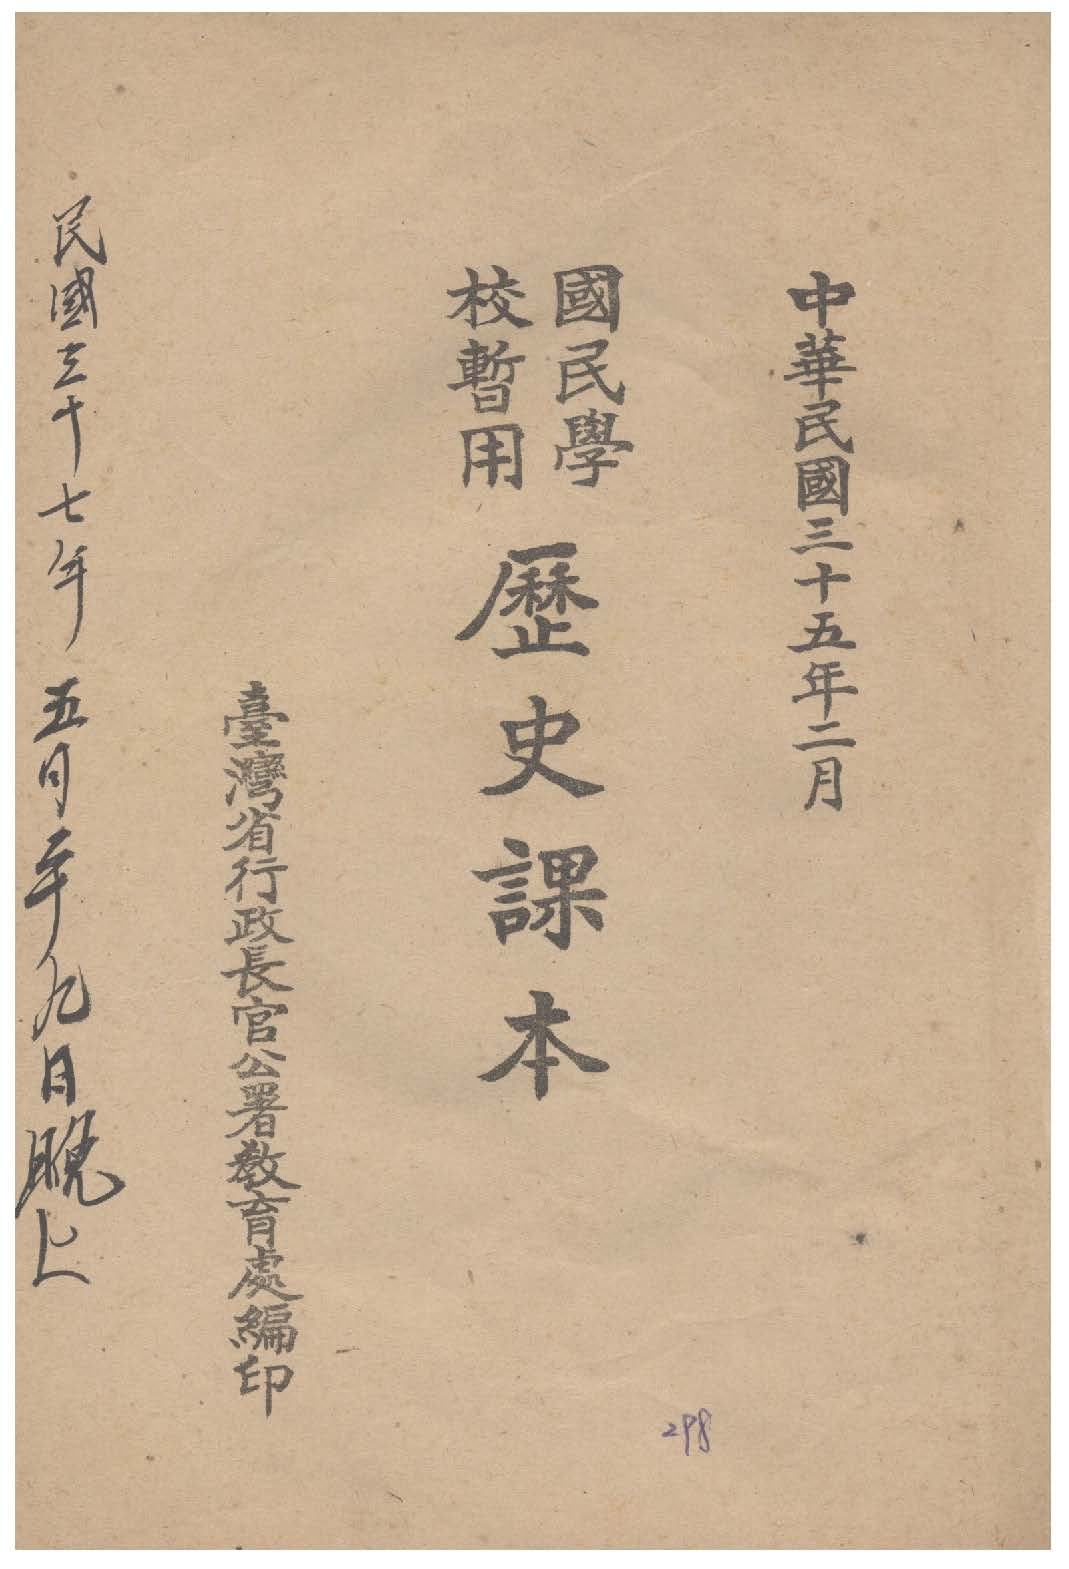 中華民國三十五年二月
國民學
校暫用
歷史課本
臺灣省行政長官公署教育處編印
民國三十七年五月二十九日晚上
298